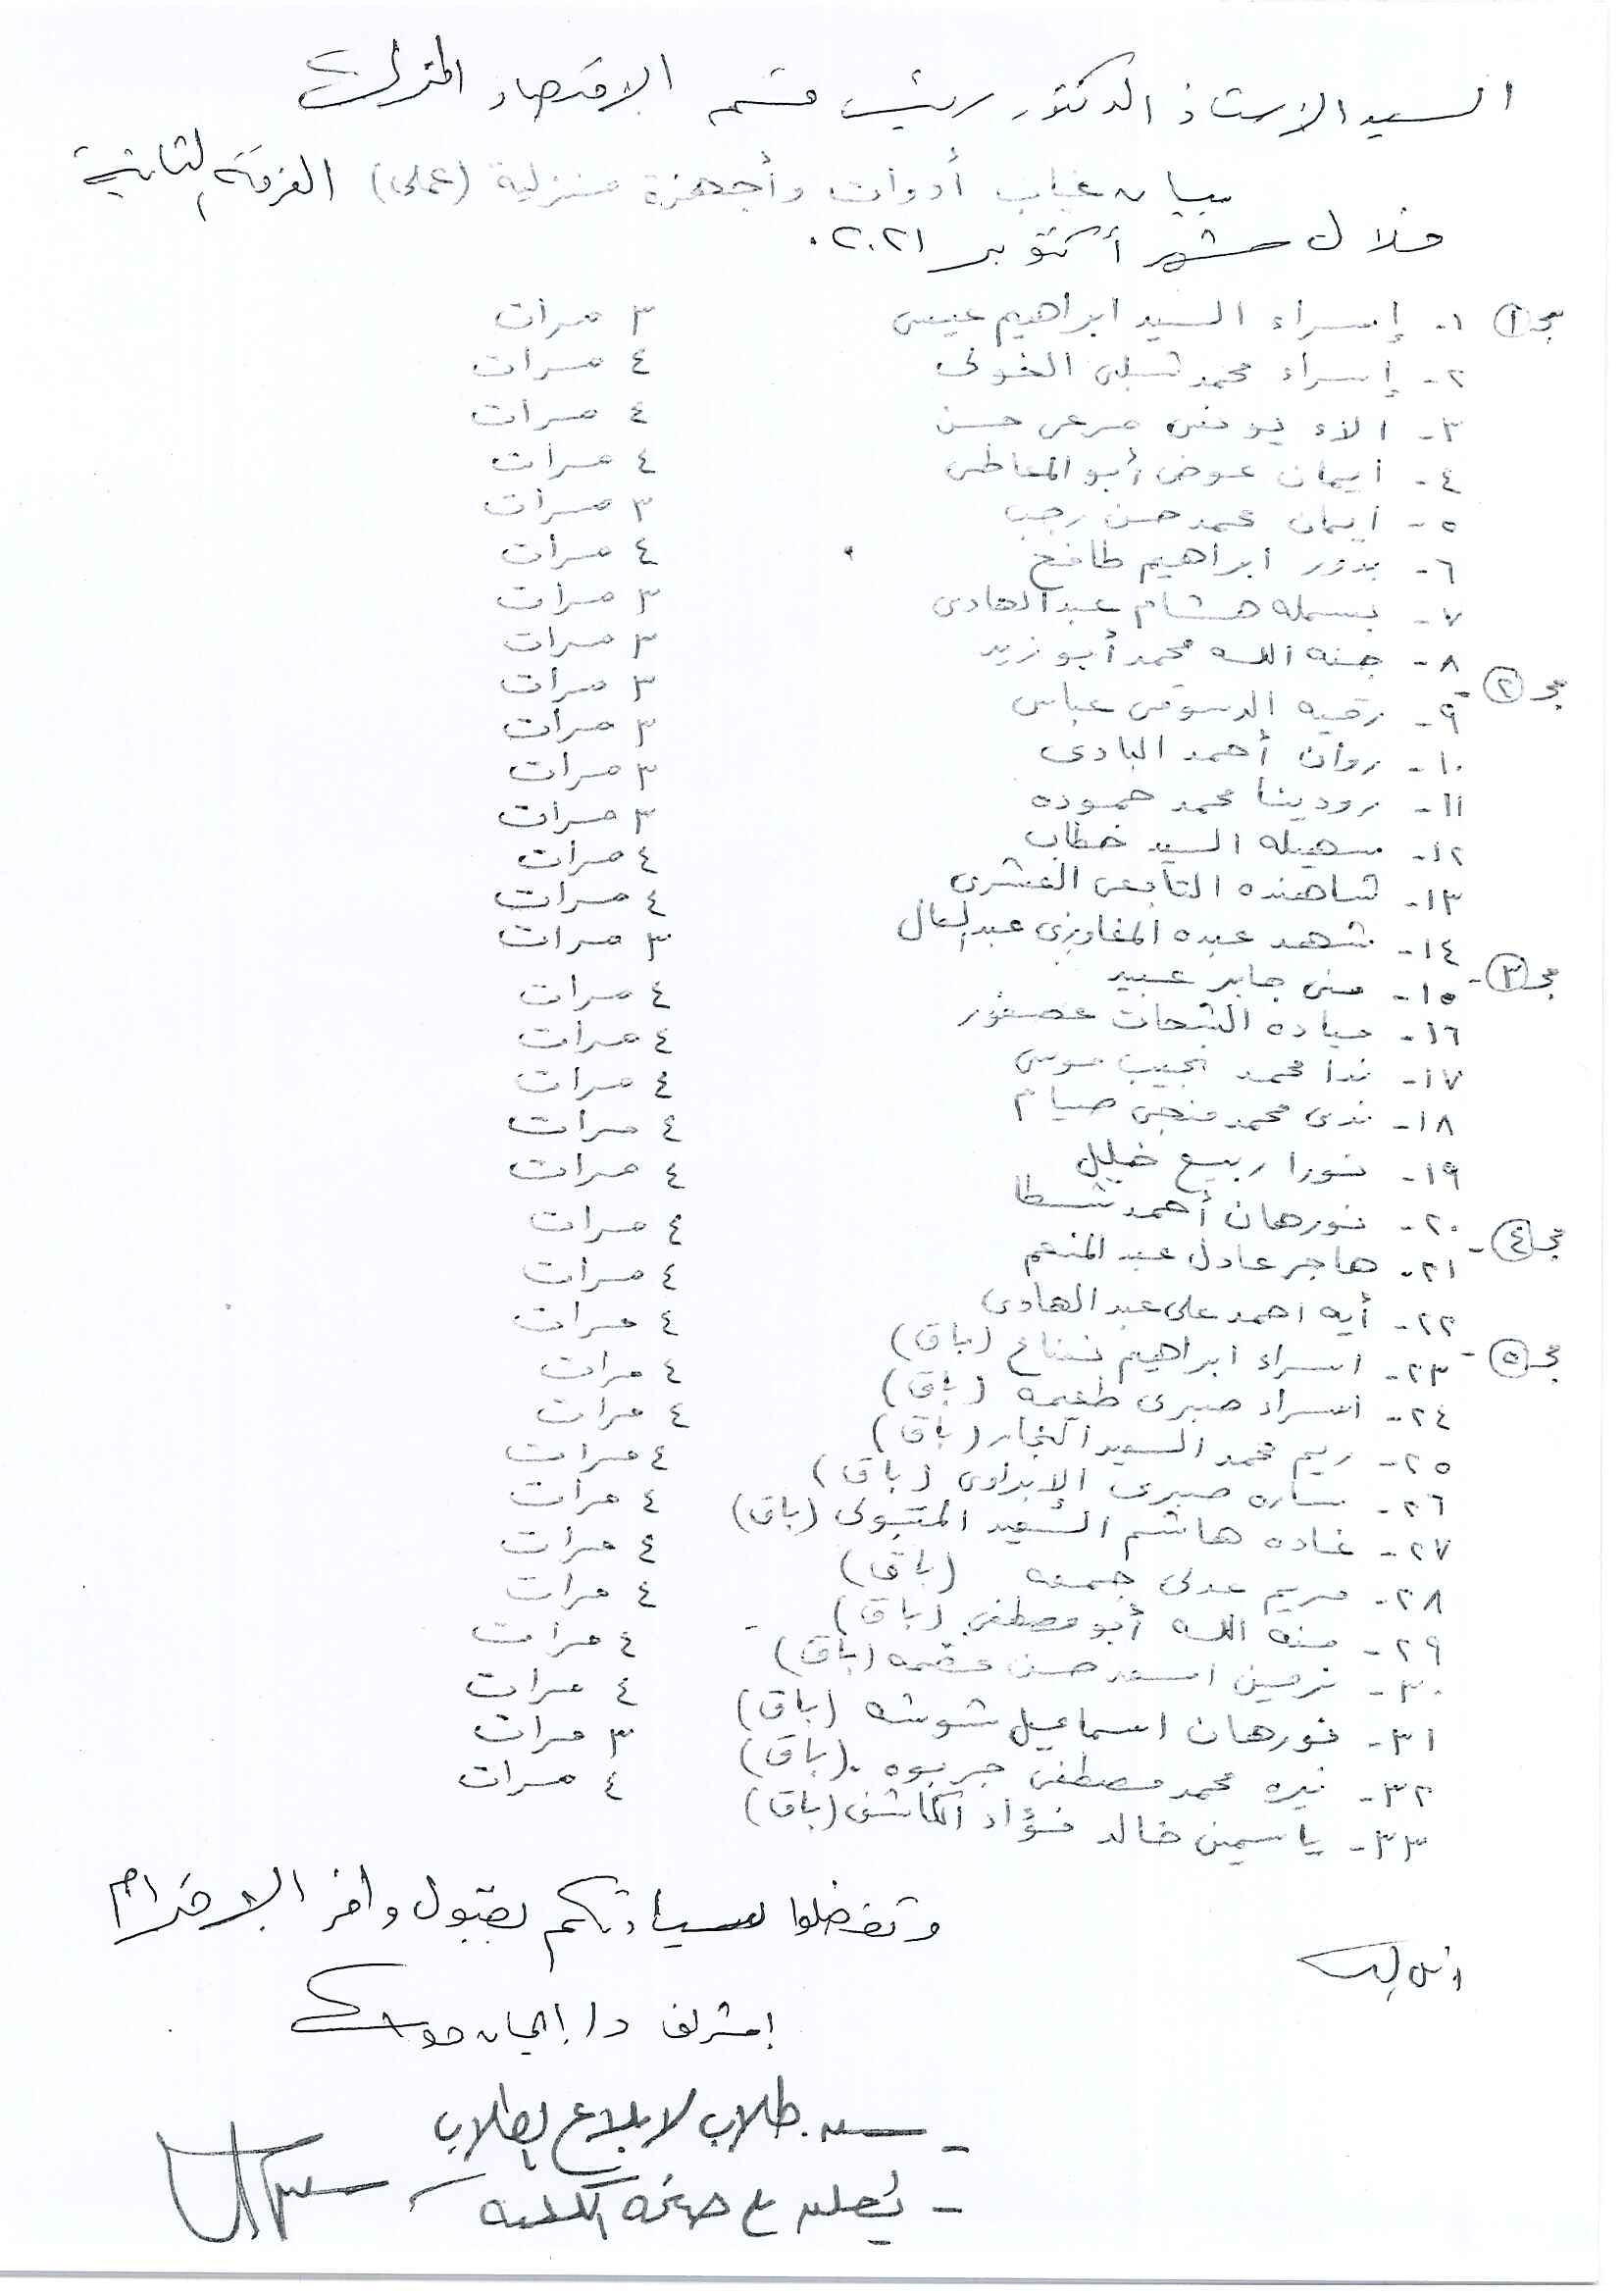 السيد الاستاذ الدكتور رئيس قسم الاقتصاد المنزلى
بيان غياب أدوات وأجهزة منزلية (عملى) الفرقة الثانية
خلال شهر أكتوبر ٢٠٢١.
مجـ ١ ١- إسراء السيد ابراهيم عيسى ٣ مرات
٢- إسراء محمد شلبى الخولى ٤ مرات
٣- الاء يونس مرعى حسن ٤ مرات
٤- ايمان عوض أبو المعاطى ٤ مرات
٥- ايمان محمد حسن رجب ٣ مرات
٦- بدور ابراهيم طافح ٤ مرات
٧- بسمله هشام عبد الهادى ٣ مرات
٨- جنه الله محمد أبو زيد ٣ مرات
مجـ ٢ - ٩- رقيه الدسوقى عباس ٣ مرات
١٠- روان أحمد البادى ٣ مرات
١١- رودينا محمد حموده ٣ مرات
١٢- سهيله السيد خطاب ٣ مرات
١٣- شاهنده التابعى العشرى ٤ مرات
١٤- شهد عبده المغاورى عبد العال ٤ مرات
مجـ ٣ - ١٥- منى جابر عبيد ٣ مرات
١٦- مياده الشحات عصفور ٤ مرات
١٧- ندا محمد نجيب موسى ٤ مرات
١٨- ندى محمد صيام ٤ مرات
١٩- نورا ربيع خليل ٤ مرات
٢٠- نورهان أحمد شطا ٤ مرات
مجـ ٤ - ٢١- هاجر عادل عبد المنعم ٤ مرات
٢٢- أيه احمد على عبد الهادى ٤ مرات
مجـ ٥ - ٢٣- اسراء ابراهيم (باق) ٤ مرات
٢٤- اسراء صبرى طعيمه (باق) ٤ مرات
٢٥- ريم محمد السيد النجار (باق) ٤ مرات
٢٦- ساره صبرى (باق) ٤ مرات
٢٧- غاده هاشم السعيد المتبولى (باق) ٤ مرات
٢٨- مريم عدلى جمعه (باق) ٤ مرات
٢٩- منه الله أبو مصطفى (باق) ٤ مرات
٣٠- نرمين اسعد حسن (باق) ٤ مرات
٣١- نورهان اسماعيل شوشه (باق) ٤ مرات
٣٢- نيره محمد مصطفى جربوه. (باق) ٣ مرات
٣٣- ياسمين خالد فؤاد الكاشف (باق) ٤ مرات
وتفضلوا سيادتكم بقبول وافر الاحترام
إشراف د/ إيمان
- طلاب لابلاغ الطلاب
- يعلن ع صفحة الكلية